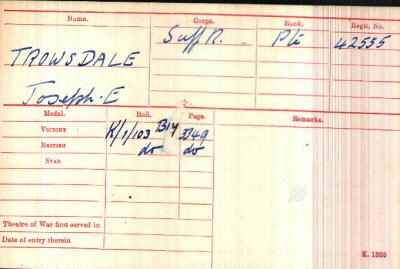 Name. Corps. Rank. Regtl. No.
TROWSDALE Suff R. Pte 42555
Joseph. E
Medal. Roll. Page. Remarks.
VICTORY K/1/103 B14 3349
BRITISH do do
STAR
Theatre of War first served in
Date of entry therein
K. 1380